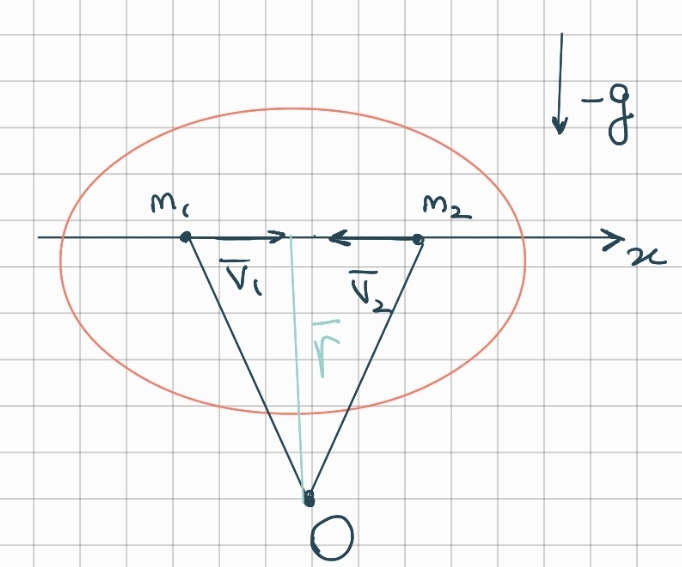 -g
m₁ m₂
x
V̅₁ V̅₂
r̅
O